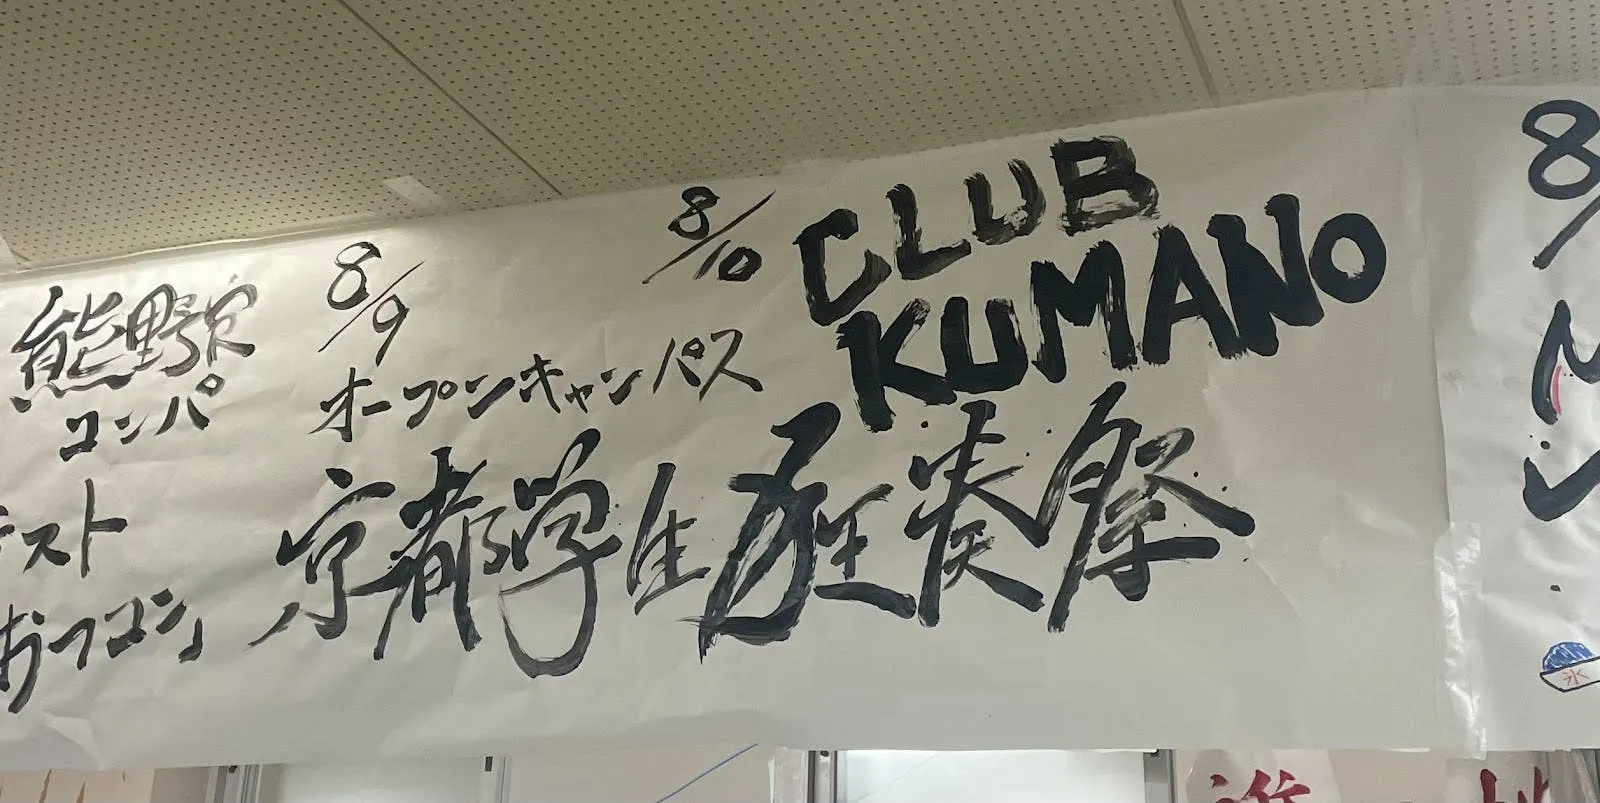 熊野寮
コンパ
テスト
おつコン」
8/9
オープンキャンパス
京都学生狂奏祭
8/10
CLUB
KUMANO
8/
氷